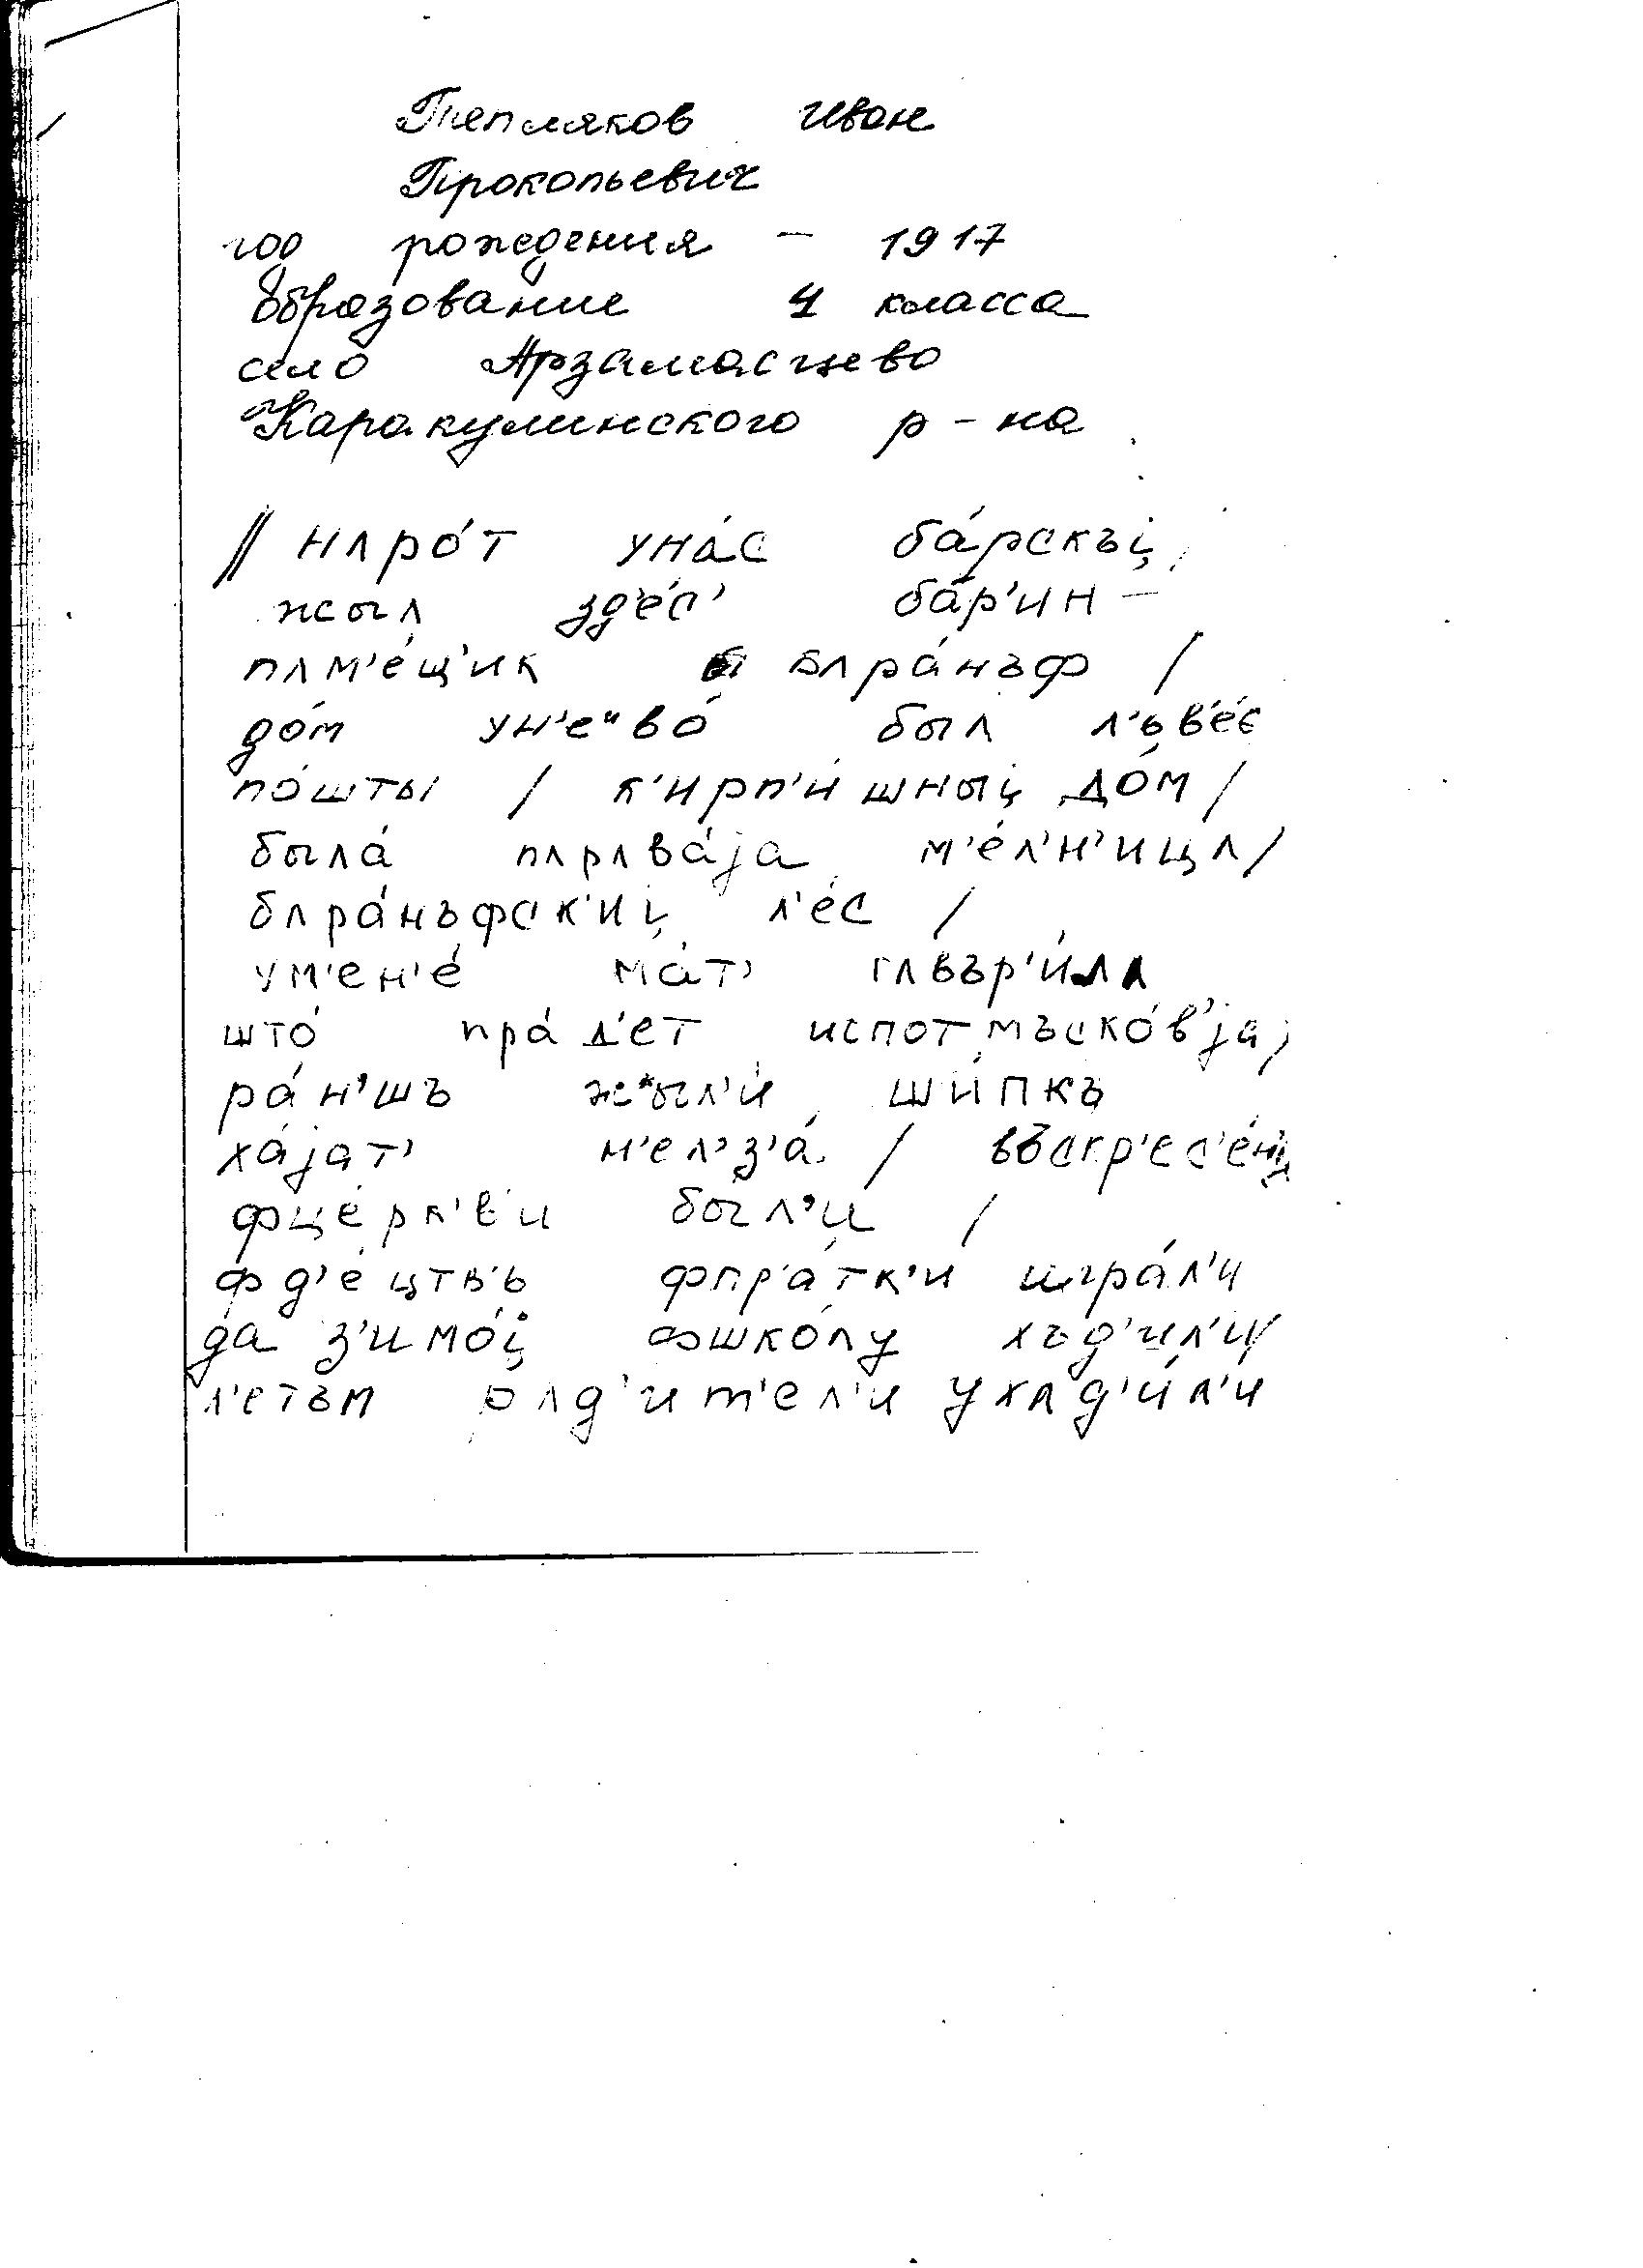 Тепляков Иван
Прокопьевич
год рождения – 1917
Образование 4 класса
село Арзамасцево
Каракулинского р-на
// нлро́т уна́с ба́рскъį,
жыл зд'е́с' ба́р'ин –
плм'е́щ'ик блра́нъф /
до́м ун'еᵘво́ был л'ъв'е́с
по́шты / к'ирп'и́шныį до́м /
была́ плрлва́jа м'е́л'н'ицл /
блра́нъфск'иį л'е́с /
ум'ен'е́ ма́т' глвър'и́лл
што́ пра́д'ет испотмъско́в'jа,
ра́н'шъ жыл'и́ ши́пкъ
ха́jат' н'ел'з'а́ / въскр'ес'е́н'ц
фце́рк'в'и был'и /
фд'е́цтв'ь фпр'а́тк'и игра́л'и
да з'имо́į фшко́лу хъд'ил'и /
л'етъм рлд'ит'ел'и ухлд'и́л'и